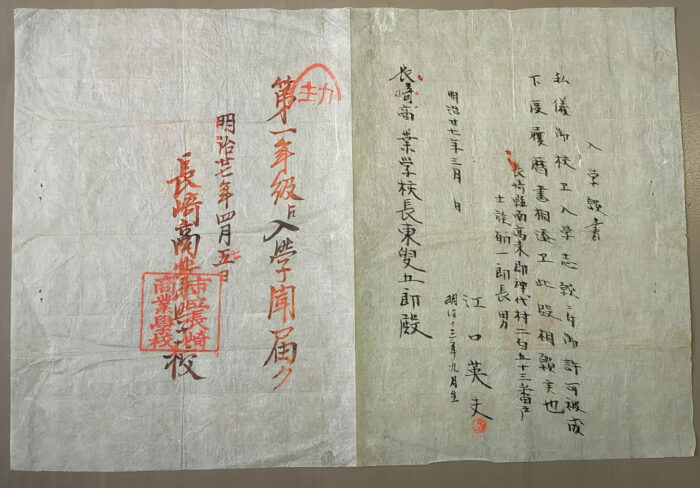 入学願書
私儀御校エ入学志願ニ付御許可被成
下度履歴書相添エ此段相願候也
長崎縣南高来郡神代村二百五十三番戸
士族 一郎長男
江口英夫
明治十二年九月生
明治廿七年三月 日
長崎商業学校長東奭五郎殿
第一年級ニ入學聞届ク
明治廿七年四月五日
長崎商業學校
市立長崎
商業學校